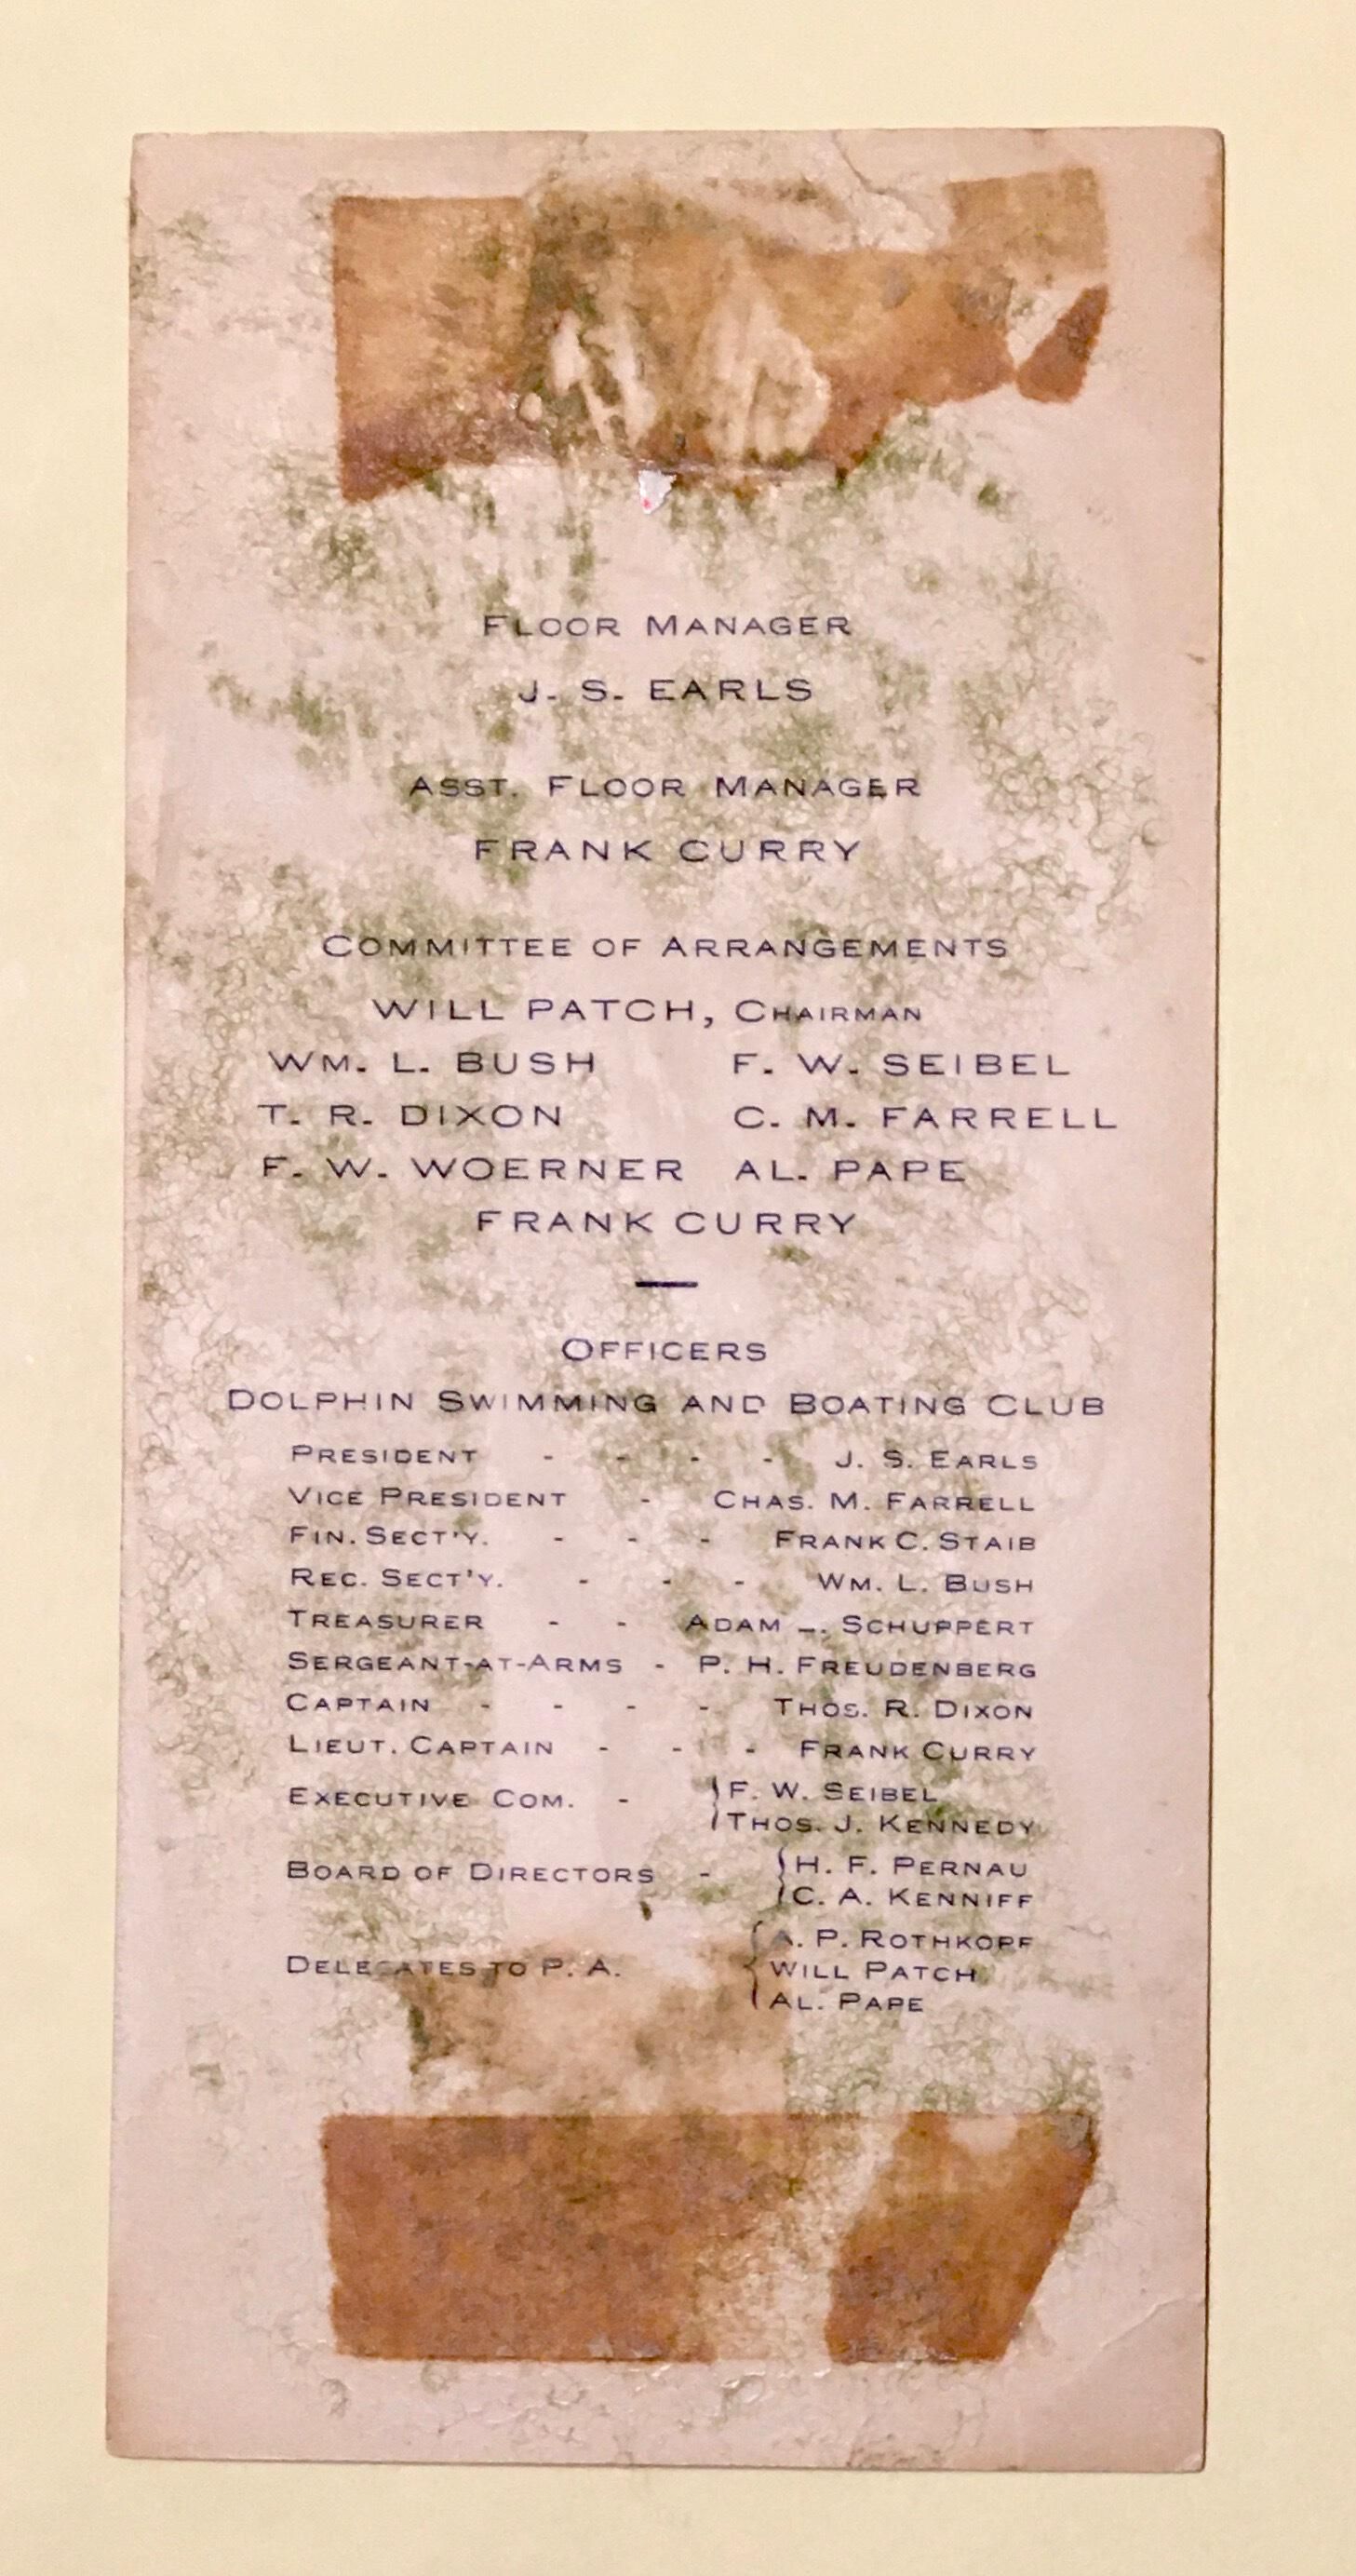 FLOOR MANAGER
J. S. EARLS
ASST. FLOOR MANAGER
FRANK CURRY
COMMITTEE OF ARRANGEMENTS
WILL PATCH, CHAIRMAN
WM. L. BUSH F. W. SEIBEL
T. R. DIXON C. M. FARRELL
F. W. WOERNER AL. PAPE
FRANK CURRY
OFFICERS
DOLPHIN SWIMMING AND BOATING CLUB
PRESIDENT - - - - J. S. EARLS
VICE PRESIDENT - CHAS. M. FARRELL
FIN. SECT'Y. - - - FRANK C. STAIB
REC. SECT'Y. - - - WM. L. BUSH
TREASURER - - ADAM SCHUPPERT
SERGEANT-AT-ARMS - P. H. FREUDENBERG
CAPTAIN - - - - THOS. R. DIXON
LIEUT. CAPTAIN - - - FRANK CURRY
EXECUTIVE COM. - { F. W. SEIBEL
THOS. J. KENNEDY
BOARD OF DIRECTORS - { H. F. PERNAU
C. A. KENNIFF
DELEGATES TO P. A. { A. P. ROTHKOPF
WILL PATCH
AL. PAPE